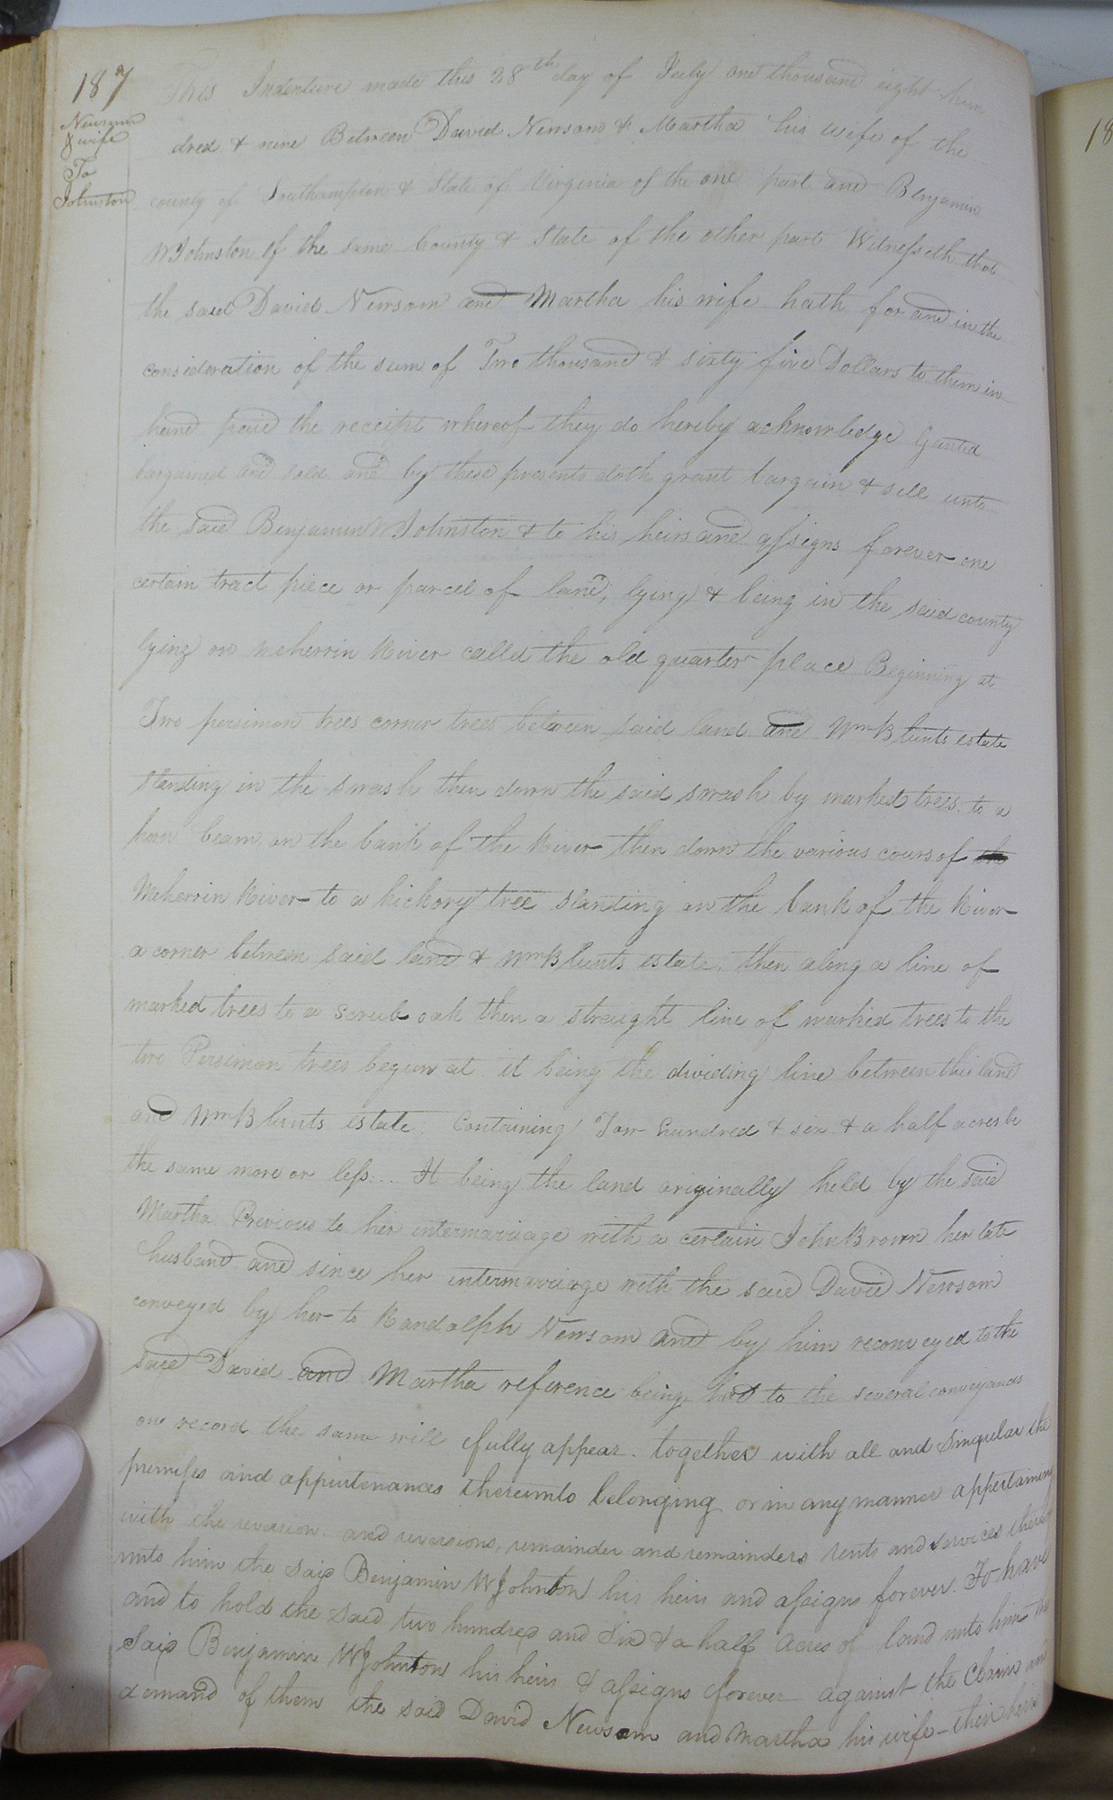 187
Newsom
& wife
To
Johnston
This Indenture made this 28th day of July one thousand eight hun
dred & nine Between David Newsom & Martha his wife of the
county of Southampton & State of Virginia of the one part and Benjamin
W Johnston of the same County & State of the other part Witnesseth that
the said David Newsom and Martha his wife hath for and in the
consideration of the sum of Two thousand & sixty five Dollars to them in
hand paid the receipt whereof they do hereby acknowledge Ganted
bargained and sold and by these presents doth grant bargain & sell unto
the said Benjamin W Johnston & to his heirs and assigns forever one
certain tract piece or parcel of land, lying & being in the said county
lying on Meherrin River called the old quarter place Beginning at
Two persimon trees corner trees between said land and Wm Blunts estate
standing in the swash then down the said swash by marked trees to a
horn beam on the bank of the River then down the various cours of the
Meherrin River to a hickory tree standing on the bank of the River
a corner between said land & Wm Blunts estate, then along a line of
marked trees to a scrub oak then a straught line of marked trees to the
two Persimon trees begun at it being the dividing line between this land
and Wm Blunts estate. Containing Tow hundred & six & a half acres be
the same more or less... It being the land originally held by the said
Martha Previous to her intermariage with a certain John Brown her late
husband and since her intermarriage with the said David Newsom
conveyed by her to Randolph Newsom and by him reconveyed to the
said David and Martha reference being had to the several conveyances
on record the same will fully appear. together with all and Singular the
premises and appurtenances thereunto belonging or in any manner appertaining
with the reversion and reversions, remainder and remainders rents and services thereof
unto him the said Benjamin W Johnton his heirs and assigns forever. To have
and to hold the said two hundred and Six & a half acres of land unto him the
said Benjamin W Johnton his heirs & assigns forever against the Claims and
demand of them the said David Newsom and Martha his wife - their heirs
18